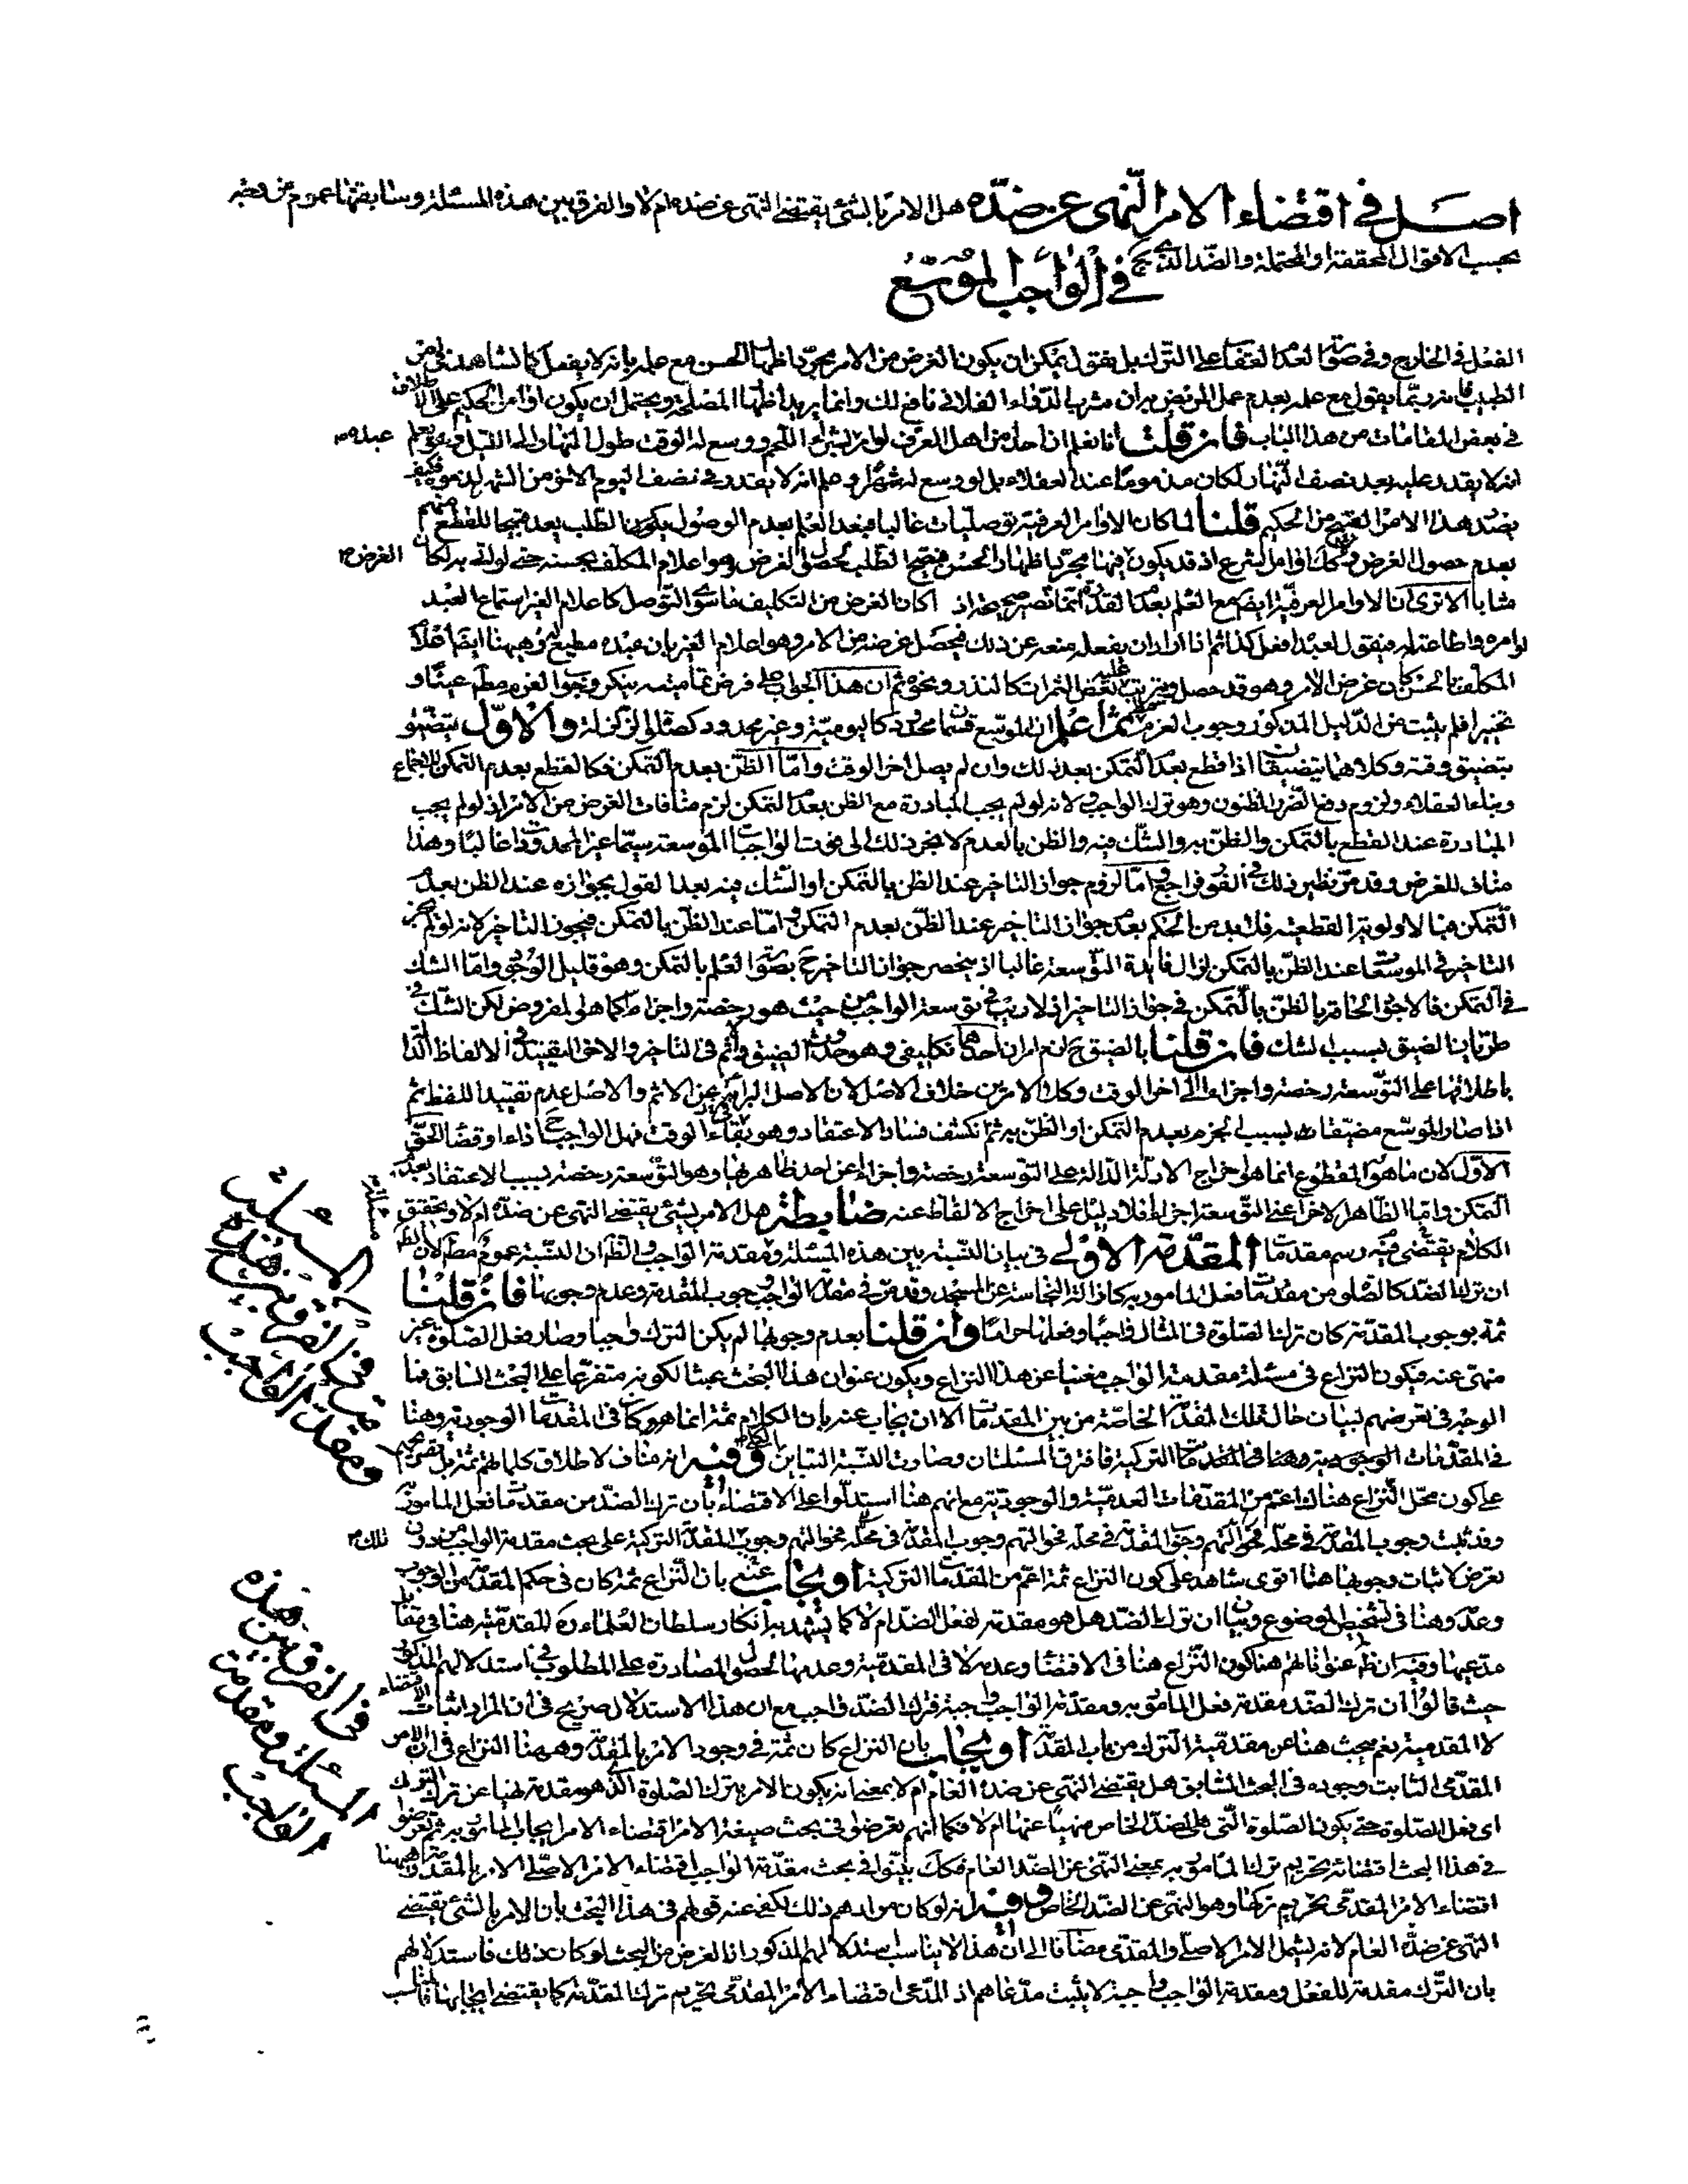 اصل في اقتضاء الامر النهى عن ضدّه هل الامر بالشئ يقتضى النهى عن ضده ام لا والفرق بين هذه المسئلة وسابقتها عموم من وجه
بحسب الاقوال المحققة والمحتملة والضد الذى
في الواجب الموسّع
الفعل في الخارج وفي صورة العلم اتفقا على الترك بل يقول يمكن ان يكون الغرض من الامر مجرد اظهار الحسن مع علمه بانه لا يفعل كما نشاهد في امر
الطبيب فانه ربما يقول مع علمه بعدم عمل المريض به ان شرب الدواء الفلاني نافع لك وانما يريد اظهار المصلحة ويحتمل ان يكون اوامر الحكيم على الاطلاق
في بعض المقامات من هذا الباب فان قلت انا نعلم ان احدا من اهل العرف لو امر بشراء اللحم ووسع له الوقت طول النهار الى الليل وهو يعلم
انه لا يقدر عليه بعد نصف النهار لكان مذموما عند العقلاء بل لو وسع له شهرا وعلم انه لا يقدر في نصف اليوم الاخر من الشهر لذموه فكيف
يصدر هذا الامر القبيح من الحكيم قلنا لما كان الاوامر العرفية توصليات غالبا فبعد العلم بعدم الوصول يكون الطلب بعد قبيحا للقطع
بعدم حصول الغرض ولا كك اوامر الشرع اذ قد يكون فيها مجرد اظهار الحسن فيصح الطلب لحصول الغرض وهو اعلام المكلف بحسنه حتى لو اتى به لكان
مثابا الا ترى ان الاوامر العرفية ايضا مع العلم بعدم القدرة انما تصير صحيحة اذا كان الغرض من التكليف ما سوى التوصل كاعلام الغير استماع العبد
اوامره واطاعته له فيقول لعبده افعل كذا ثم اذا اراد ان يفعله منعه عن ذلك فيحصل غرضه من الامر وهو اعلام الغير بان عبده مطيع له وهيهنا ايضا اعلام
المكلف بالحسن كان غرض الامر وهو قد حصل ويترتب عليه بعض الثمرات كالنذر ونحوه ثم ان هذا الجواب على فرض تماميته ينكر وجوب العزم مطم عينا و
تخييرا فلم يثبت من الدليل المذكور وجوب العزم ثم اعلم ان الموسع قسمان محدود كاليومية وغير محدود كصلوة الزلزلة والاول يتضيق
بتضيق وقته وكلاهما يتضيقان اذا قطع بعدم التمكن بعد ذلك وان لم يصل اخر الوقت واما الظن بعدم التمكن فكالقطع بعدم التمكن للاجماع
وبناء العقلاء ولزوم دفع الضرر المظنون وهو ترك الواجب ولانه لو لم يجب المبادرة مع الظن بعدم التمكن لزم منافات الغرض من الامر اذ لو لم يجب
المبادرة عند القطع بالتمكن والظن به والشك فيه والظن بالعدم لا نجر ذلك الى فوت الواجبات الموسعة سيما غير المحدودات غالبا وهذا
مناف للغرض وقد مر نظير ذلك في الفور فراجع واما لزوم جواز التاخير عند الظن بالتمكن او الشك فيه بعد القول بجوازه عند الظن بعدم
التمكن فبالاولوية القطعية فلا بد من الحكم بعدم جواز التاخير عند الظن بعدم التمكن واما عند الظن بالتمكن فيجوز التاخير لانه لو لم يجز
التاخير في الموسعات عند الظن بالتمكن لزال فايدة التوسعة غالبا اذ ينحصر جواز التاخير ح بصورة العلم بالتمكن وهو قليل الوجود واما الشك
في التمكن فالاجود الحاقه بالظن بالتمكن في جواز التاخير اذ لا ريب في توسعة الواجب من حيث هو رخصة واجزاء كما هو المفروض لكن الشك في
طريان الضيق بسبب الشك فان قلنا بالضيق ح لزم امران احدهما تكليفى وهو حدوث الضيق والاثم في التاخير والاخر التقييد في الالفاظ الدالة
باطلاقها على التوسعة رخصة واجزاء الى اخر الوقت وكلا الامرين خلاف الاصل لان الاصل البرائة عن الاثم والاصل عدم تقييد اللفظ ثم
اذا صار الموسع مضيقا بسبب الجزم بعدم التمكن او الظن به ثم انكشف فساد الاعتقاد وهو بقاء الوقت فهل الواجب ح اداء او قضاء الحق
الاول لان ما هو المقطوع انما هو اخراج الادلة الدالة على التوسعة رخصة واجزاء عن احد ظاهريها وهو التوسعة رخصة بسبب الاعتقاد بعدم
التمكن واما الظاهر الاخر اعنى التوسعة اجزاء فلا دليل على اخراج الالفاظ عنه ضابطة هل الامر بشئ يقتضى النهى عن ضده ام لا وتحقيق
الكلام يقتضى فيه رسم مقدمات المقدمة الاولى في بيان النسبة بين هذه المسئلة ومقدمة الواجب والظ ان النسبة عموم مطم لان الظ
ان ترك الضد كالصلوة من مقدمات فعل المامور به كازالة النجاسة عن المسجد وقد مر في مقدمة الواجب وجوب المقدمة وعدم وجوبها فان قلنا
ثمة بوجوب المقدمة كان ترك الصلوة في المثال واجبا وفعلها حراما وان قلنا بعدم وجوبها لم يكن الترك واجبا وصار فعل الصلوة غير
منهى عنه فيكون النزاع في مسئلة مقدمة الواجب مغنيا عن هذا النزاع ويكون عنوان هذا البحث عبثا لكونه متفرعا على البحث السابق فما
الوجه في تعرضهم لبيان حال تلك المقدمة الخاصة من بين المقدمات الا ان يجاب عنه بان الكلام ثمة انما هو كان في المقدمات الوجودية وهنا
في المقدمات التركية فافترق المسئلتان وصارت النسبة التباين الكلى وفيه انه مناف لاطلاق كلماتهم ثمة بل تصريحهم
على كون محل النزاع هناك اعم من المقدمات العدمية والوجودية مع انهم هنا استدلوا على الاقتضاء بان ترك الضد من مقدمات فعل المامور به
وقد ثبت وجوب المقدمة في محله فحوالتهم وجوب المقدمة في محله فحوالتهم وجوب المقدمة التركية على بحث مقدمة الواجب من دون
تعرض لاثبات وجوبها هنا اقوى شاهد على كون النزاع ثمة اعم من المقدمات التركية او يجاب عنه بان النزاع ثمة كان في حكم المقدمة من الوجوب
وعدمه وهنا في تشخيص الموضوع وبيان ان ترك الضد هل هو مقدمة لفعل الضد ام لا كما يشهد به انكار سلطان العلماء ره للمقدمية هنا في مقابل
مدعيها وفيه ان ظ عنواناتهم هنا كون النزاع هنا في الاقتضاء وعدمه لا في المقدمية وعدمها لحصول المصادرة على المطلوب في استدلالهم المذكور
حيث قالوا ان ترك الضد مقدمة فعل المامور به ومقدمة الواجب واجبة فترك الضد واجب مع ان هذا الاستدلال صريح في ان المراد اثبات الاقتضاء
لا المقدمية نعم يبحث هنا عن مقدمية الترك من باب المقدمة او يجاب بان النزاع كان ثمة في وجود الامر بالمقدمة وهيهنا النزاع في ان الامر
المقدمى الثابت وجوده في البحث السابق هل يقتضى النهى عن ضده العام ام لا بمعنى انه يكون الامر بترك الصلوة الذى هو مقدمة نهيا عن ترك الترك
اى فعل الصلوة حتى يكون الصلوة التى هى الضد الخاص منهيا عنها ام لا فكما انهم تعرضوا في بحث صيغة الامر اقتضاء الامر ايجاب المامور به ثم تعرضوا
في هذا البحث اقتضائه تحريم ترك المامور به بمعنى النهى عن الضد العام فكك بينوا في بحث مقدمة الواجب اقتضاء الامر الاصلى الامر بالمقدمة وهيهنا
اقتضاء الامر المقدمى تحريم تركها وهو النهى عن الضد الخاص وفيه انه لو كان مرادهم ذلك لكفى عنه قولهم في هذا البحث بان الامر بالشئ يقتضى
النهى عن ضده العام لانه يشمل الامر الاصلى والمقدمى مضافا الى ان هذا لا يناسب استدلالهم المذكور اذ الغرض من البحث لو كان ذلك فاستدلالهم
بان الترك مقدمة للفعل ومقدمة الواجب واجبة لا يثبت مدعاهم اذ المدعى اقتضاء الامر المقدمى تحريم ترك المقدمة كما يقتضى ايجابها
في الفرق بين هذه
المسئلة ومقدمة
الواجب
في الفرق بين هذه
المسئلة ومقدمة
الواجب